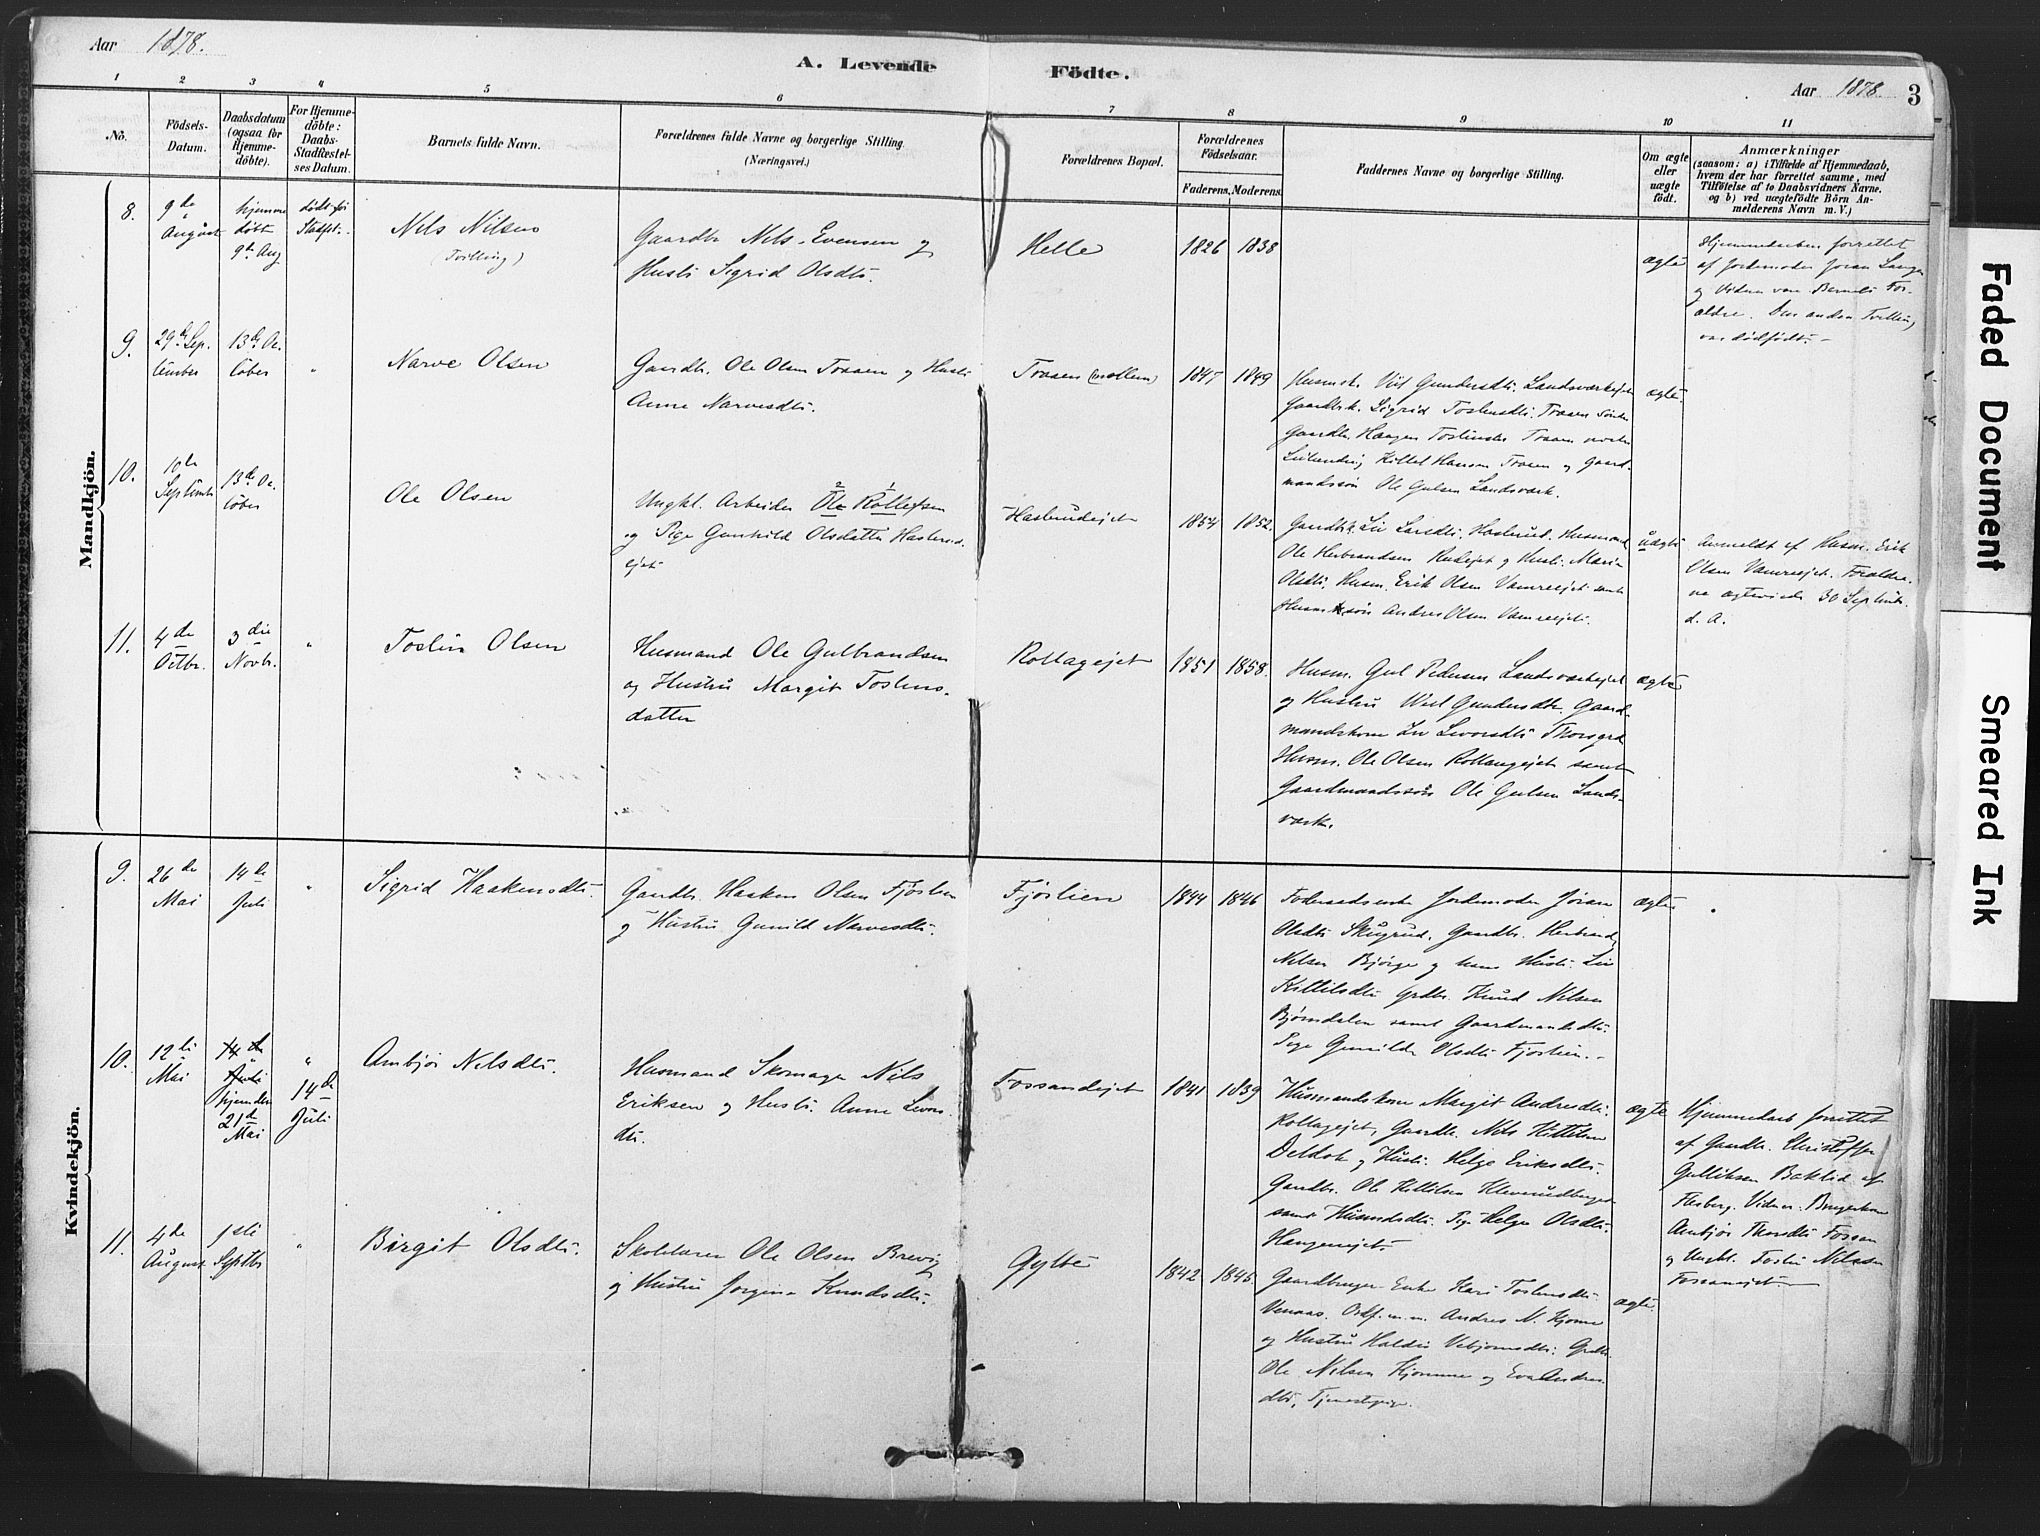 Aar 1878.
A. Levende Födte.
Aar 1878. 3
1 2 3 4 5 6 7 8 9 10 11
No.
Födsels-
Datum.
Daabsdatum
(ogsaa for
Hjemme-
döbte).
For Hjemme-
döbte:
Daabs-
Stadfæstel-
ses Datum.
Barnets fulde Navn.
Forældrenes fulde Navne og borgerlige Stilling.
(Næringsvei.)
Forældrenes Bopæl.
Forældrenes
Födselsaar.
Faderens. Moderens.
Faddernes Navne og borgerlige Stilling.
Om ægte
eller
uægte
födt.
Anmærkninger
(saasom: a) i Tilfælde af Hjemmedaab,
hvem der har forrettet samme, med
Tilföielse af to Daabsvidners Navne.
og b) ved uægtefödte Börn An-
melderens Navn m. V.)
Mandkjön.
8.
9de
August
hjemme
döbt
9de Aug
dödt för
Stadfæt.
Nels Nilsen
(Tvilling)
Gaardbr. Nels Evensen og
Hustr. Sigrid Olsdtr.
Helle
1826 1838
ægte
Hjemmedaaben forrettet
af Jordemoder Joran
og Vidner var Barnets For-
ældre. Den anden Tvilling
var dödfödt.
9.
29de Sep-
tember
13de Oc-
tober
"
Narve Olsen
Gaardbr. Ole Olsen Traaen og Hustr.
Anne Narvesdtr.
Traaen (mellem)
1847 1849
Husmk. Gundersdtr. Landsværkejet
Gaardbrk. Sigrid Toslensdtr. Traaen
Gaardbr. Haagen Traaen
Kittel Hansen Traaen og Gaard-
mandssön Ole Gulsen Landsværk.
ægte
10.
10de
Septembr
13de Oc-
tober
Ole Olsen
Ungkl. Arbeider Ole Rollefsen
og Pige Gunhild Olsdatter Haslerud-
ejet
Haslerudejet
1854 1852.
Gaardbrk. Liv Larsdtr. Haslerud. Husmand
Ole Herbrandsen og Hustr. Mari
Olsdtr. Husm. Erik Olsen Vamresejet samt
Husmkssön Andres Olsen Vamresejet.
uægte
Anmeldt af Husm. Erik
Olsen Vamresejet. Foreldre-
ne ægteviede 30 Septembr.
d. A.
11.
4de
Octbr.
3die
Novbr.
"
Toslin Olsen
Husmand Ole Gulbrandsen
og Hustru Margit Toslens-
datter
Rollagejet
1851 1858.
Husm. Gul Pedersen Landsværkejet
og Hustru Gundersdtr. Gaard-
mandskone Liv Levorsdtr
Husm. Ole Olsen Rollagejet samt
Gaardmandssön Ole Gulsen Lands-
værk.
ægte
Kvindekjön.
9.
26de
Mai
14de
Juli
"
Sigrid Haakensdtr.
Gaardbr. Haaken Olsen Fjöslien
og Hustru Gunild Narvesdtr.
Fjöslien
1844 1846
Jordemoder Jöran
Olsdtr Skugrud. Gaardbr. Herbrand
Nilsen Björge og hans Hustr. Liv
Kittilsdtr Grdbr. Knud Nilsen
Björndalen samt Gaardmandsdtr.
Pige Gunild Olsdtr. Fjöslien.
ægte
10.
12te
Mai
14de
Juli
hjemdöbt
21de
Mai
"
14de
Juli
Ambjör Nilsdtr.
Husmand Skomager Nils
Eriksen og Hustr. Anne Levors-
dtr.
Fossanejet
1841 1839
Husmandskone Margit Andresdtr.
Rollagejet, Gaardbr. Nels Kittilsen
og Hustr. Helge Eriksdtr.
Gaardbr. Ole Kittilsen
samt Husmdsdtr. Pige Helge Olsdtr.
Haugenejet.
ægte
Hjemmedaab forrettet
af Gaardbr. Christoffer
Gulliksen Baklid af
Flesberg. Vidner: Brugerkone
Ambjör Thorsdtr Fossan
og Ungkl. Toslin Nilsen
Fossanejet.
11.
4de
August
1ste
Septbr
"
Birgit Olsdtr.
Skolelærer Ole Olsen Brevig
og Hustru Jorgine Knudsdtr.
Gylte
1842 1846.
Gaardbruger Enke Kari Toslensdtr.
Venaas. Andres N. Kjomme
og Hustru Vebjornsdtr. Grdbr.
Ole Nilsen Kjomme og Eva Andres-
dtr, Tjenestepige.
ægte
Faded Document
Smeared Ink